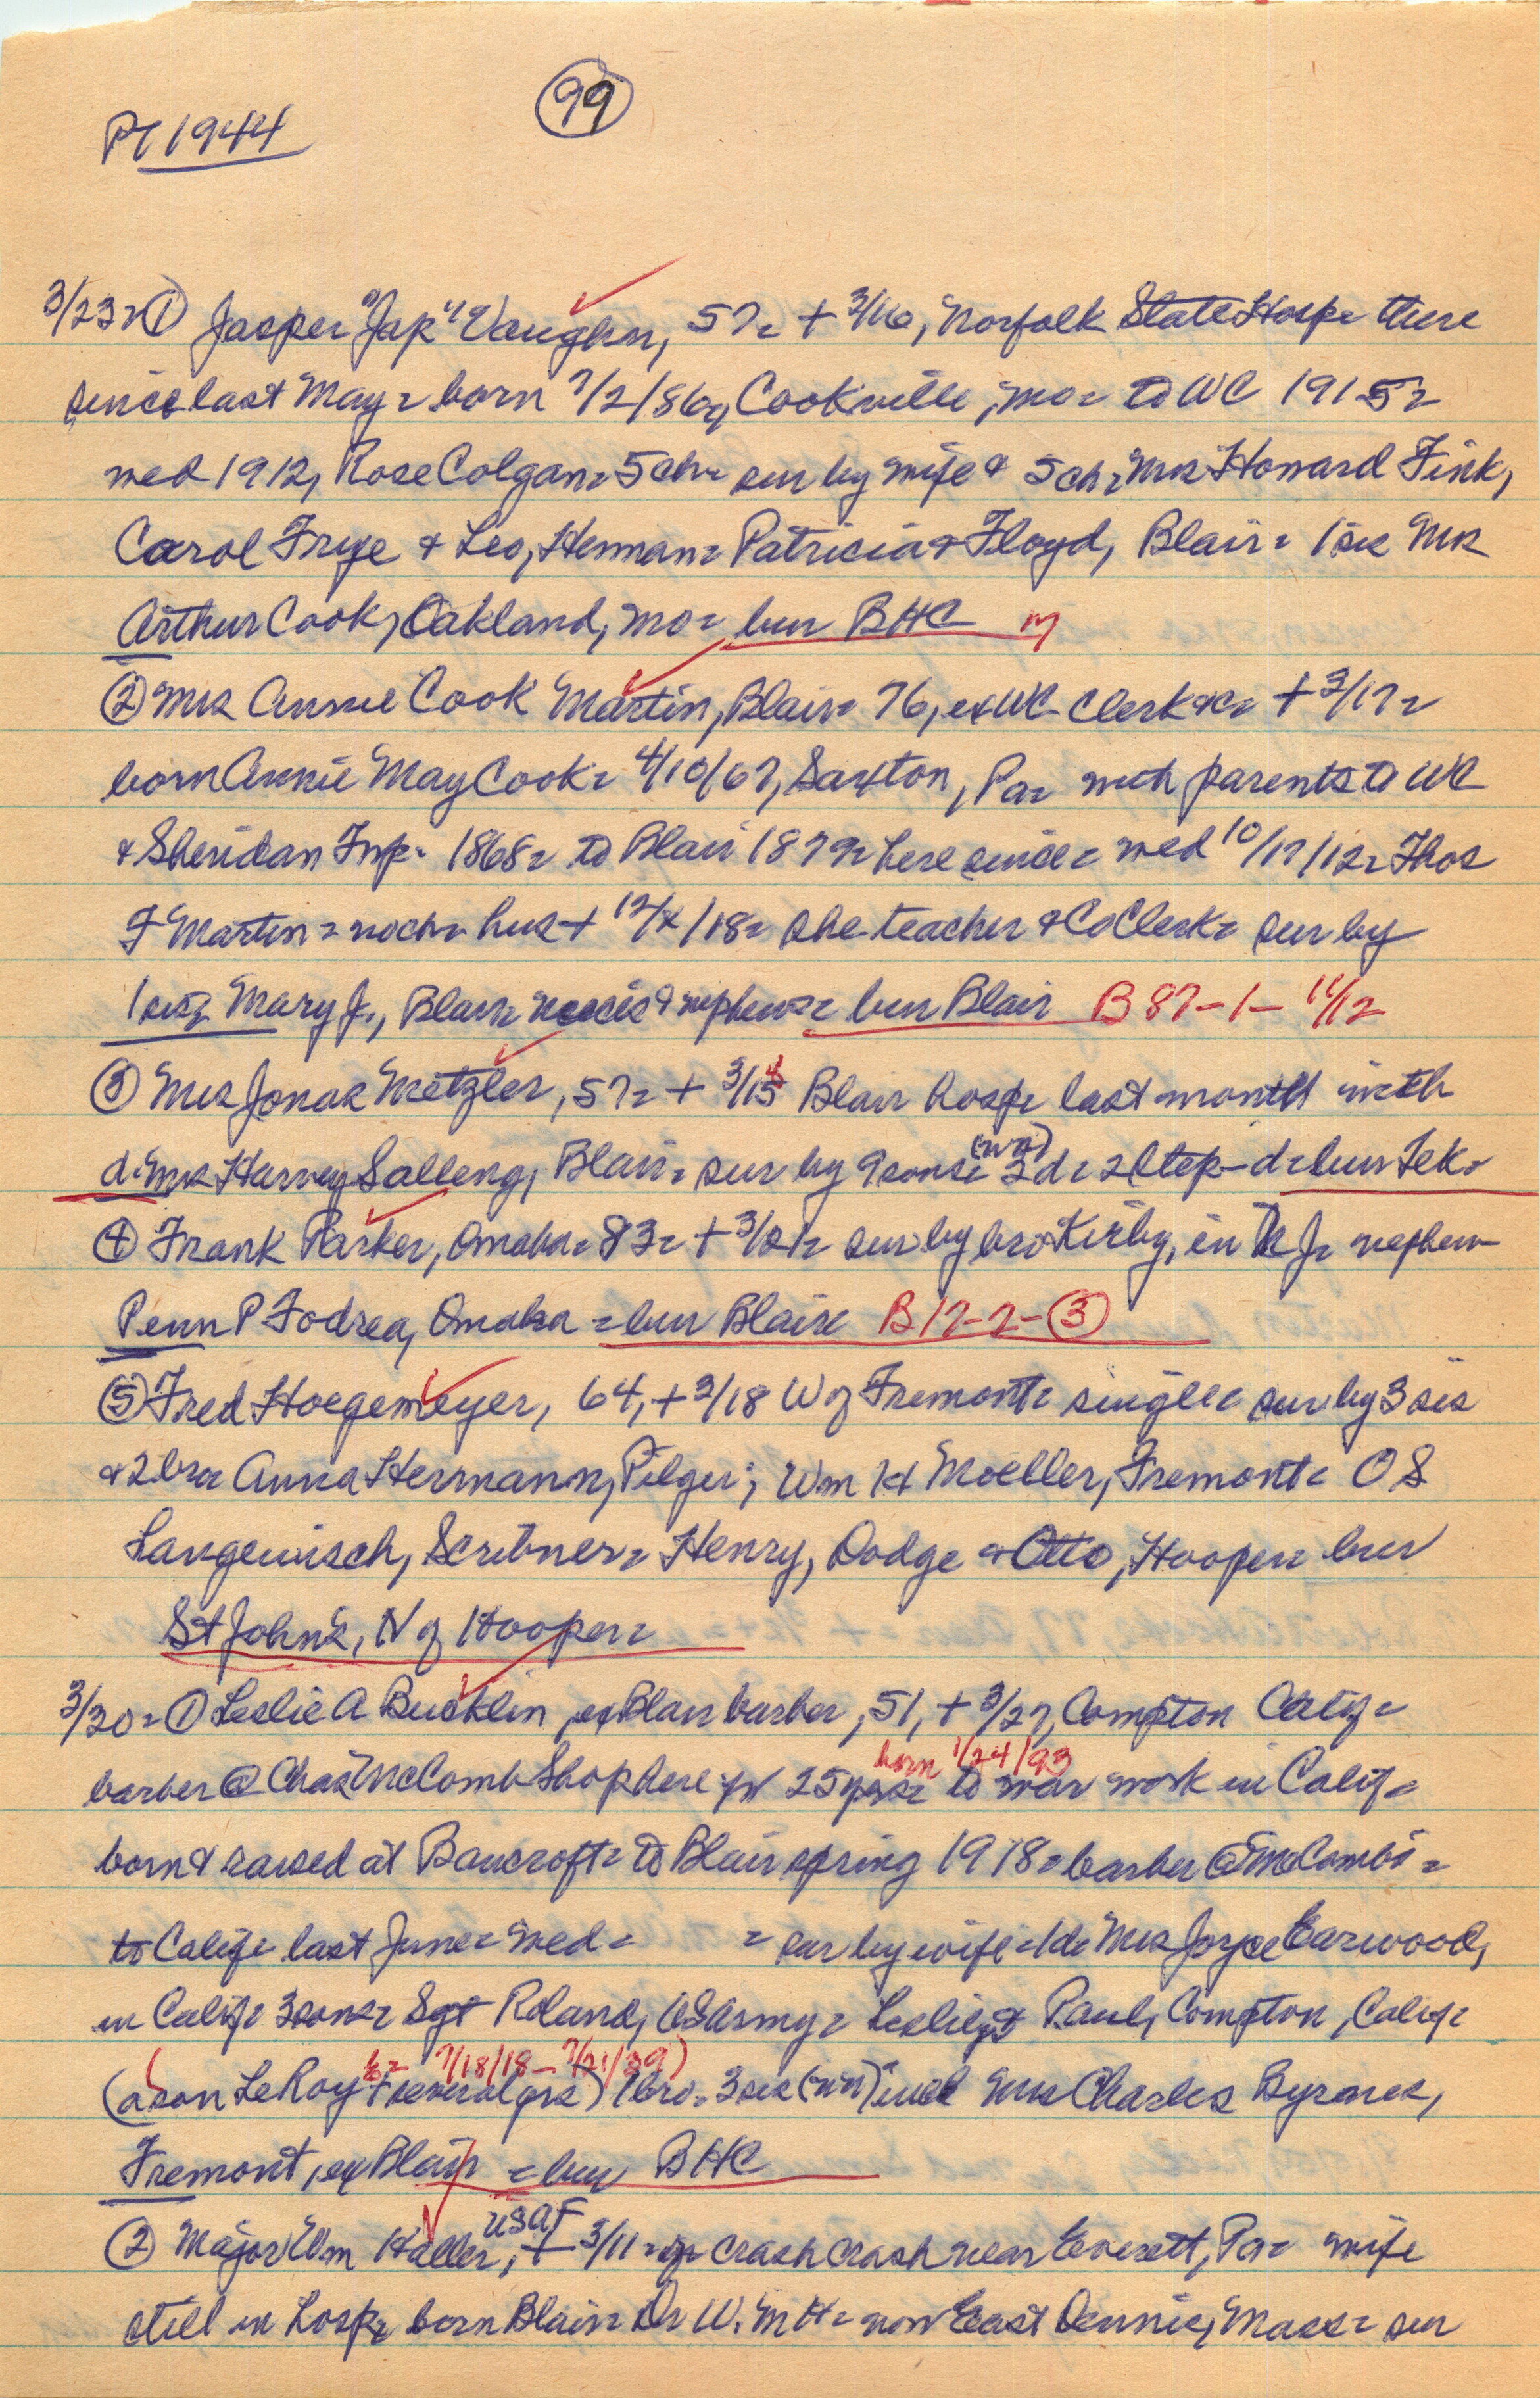 99
PT 1944
3/23 = ① Jasper "Jap" Vaughn, 57 = + 3/16, Norfolk State Hosp = there
since last May = born 7/2/86, Cookville, Mo = to WC 1915 =
wed 1912, Rose Colgan = 5 ch = sur by wife & 5 ch = Mrs Howard Fink,
Carol Frye & Leo, Herman = Patricia & Floyd, Blair = 1 sis Mrs
Arthur Cook, Oakland, Mo = bur BHC
② Mrs Annie Cook Martin, Blair = 76, ex WC Clerk &c = + 3/17 =
born Annie May Cook = 4/10/67, Saxton, Pa = with parents to WC
& Sheridan Twp = 1868 = to Blair 1879 = here since = wed 10/17/12 = Thos
F Martin = no ch = hus + 12/x/18 = she teacher & Co Clerk = sur by
1 sis, Mary J., Blair = nieces & nephews = bur Blair B 87-1-11/12
③ Mrs Jonas Metzler, 57 = + 3/15 Blair hosp = last month with
d = Mrs Harvey Salleng, Blair = sur by 9 sons = (nn) 2 d = 2 step-d = bur Tek =
④ Frank Parker, Omaha = 83 = + 3/21 = sur by bro Kirby, in N J = nephew
Penn P Fodrea, Omaha = bur Blair B 17-2-③
⑤ Fred Hoegemeyer, 64, + 3/18 W of Fremont = single = sur by 3 sis
& 2 bro = Anna Herrmann, Pilger; Wm H Moeller, Fremont = O S
Langewisch, Scribner = Henry, Dodge & Otto, Hooper = bur
St Johns, N of Hooper =
3/30 = ① Leslie A Bucklin, ex Blair barber, 51, + 3/27, Compton Calif =
born 1/24/93
barber @ Chas McComb Shop here for 25 yrs = to war work in Calif =
born & raised at Bancroft = to Blair spring 1918 = barber @ McCombs =
to Calif = last June = wed = = sur by wife = 1 d = Mrs Joyce Earwood,
in Calif = 3 sons = Sgt Roland, US Army = Leslie & Paul, Compton, Calif =
b = 7/18/18 - 7/21/39)
(a son LeRoy + several yrs) 1 bro = 3 sis (nn) incl Mrs Charles Byrnes,
Fremont, ex Blair = bur BHC
USAF
② Major Wm Haller, + 3/11 = crash crash near Everett, Pa = wife
still in hosp = born Blair = Dr W. M H = now East Dennis, Mass = sur